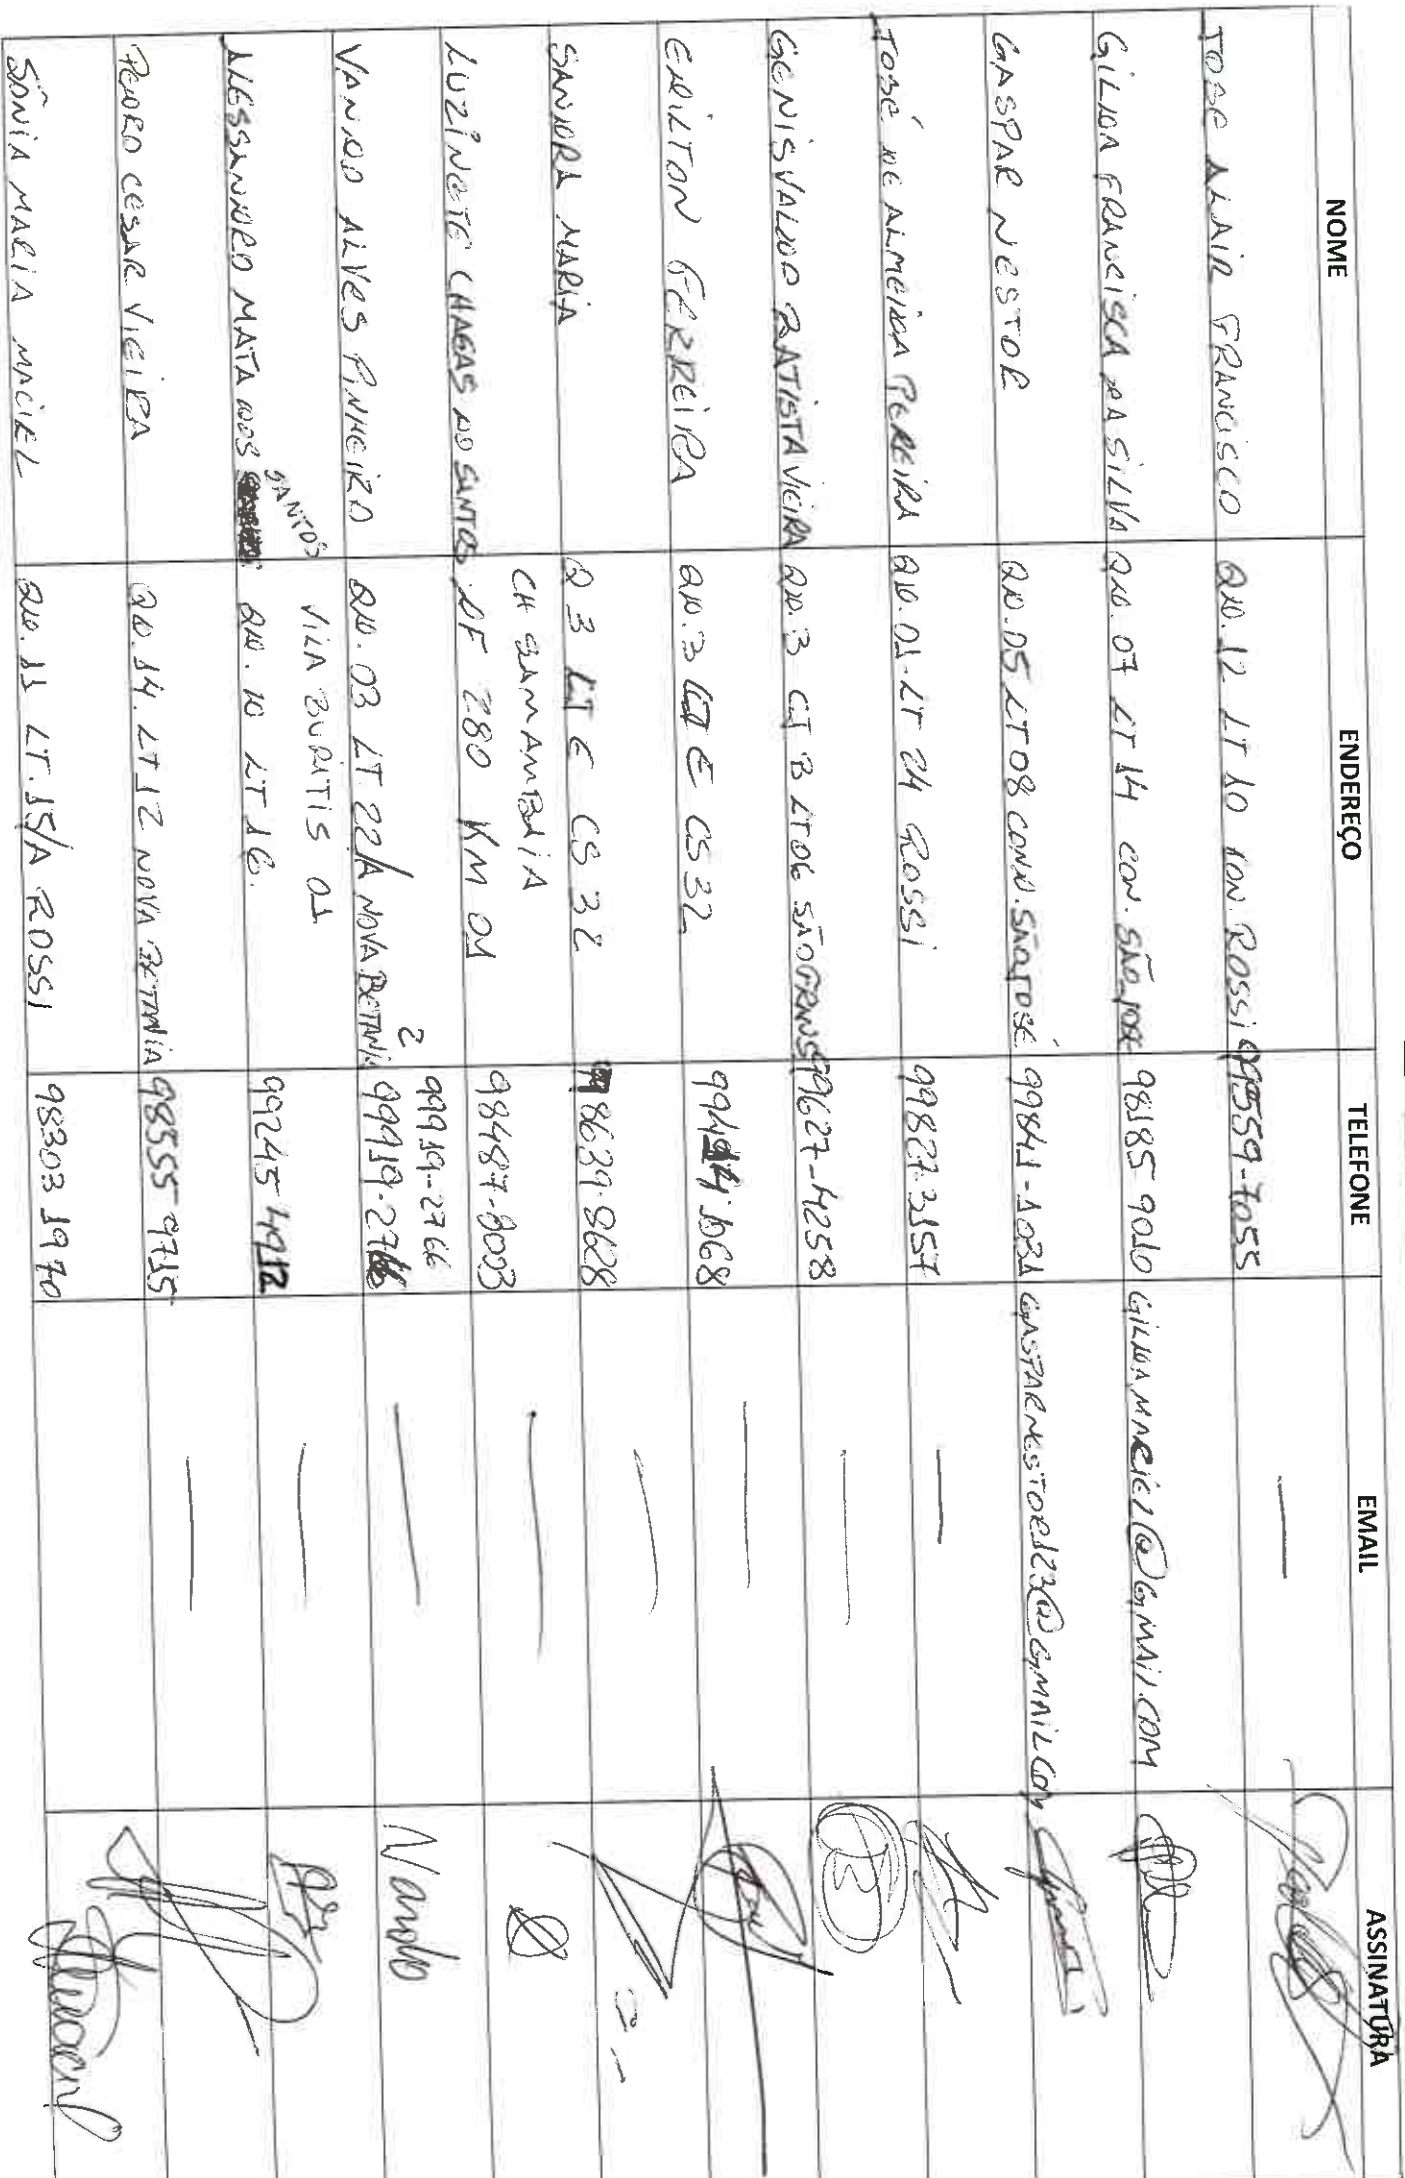 NOME ENDEREÇO TELEFONE EMAIL ASSINATURA
JOSE ALAIR FRANCISCO QD.12 LT 10 CON. ROSSI 99559-7055 —
GILDA FRANCISCA DA SILVA QD. 07 LT 14 CON. SÃO JOSE 98185 9010 GILDA.MACIEL@GMAIL.COM
GASPAR NESTOR QD.05 LT08 COND. SÃO JOSÉ 99841-1031 GASPARNESTOR123@GMAIL.COM
JOSÉ DE ALMEIDA PEREIRA QD.01-LT 24 ROSSI 99827-3157 —
GENISVALDO BATISTA VIEIRA QD.3 CJ B LT06 SÃO FRANS 99627-4258 —
EDILTON FERREIRA QD.3 E CS 32 —
SANDRA MARIA Q 3 LT E CS 32 8639-9628 —
CH SAMAMBAIA
LUZINETE CHAGAS DO SANTOS DF 280 KM 01 98487-8003 —
2 99919-2766
VANDO ALVES PINHEIRO QD.03 LT 22/A NOVA BETANIA 99919-2766 — Nando
SANTOS VILA BURITIS 01
ALESSANDRO MATA DOS QD. 10 LT 16. 99245 4912 —
PEDRO CESAR VIEIRA QD.14. LT 12 NOVA BETANIA 98555 9715 —
SÔNIA MARIA MACIEL QD.11 LT.15/A ROSSI 98303 1970